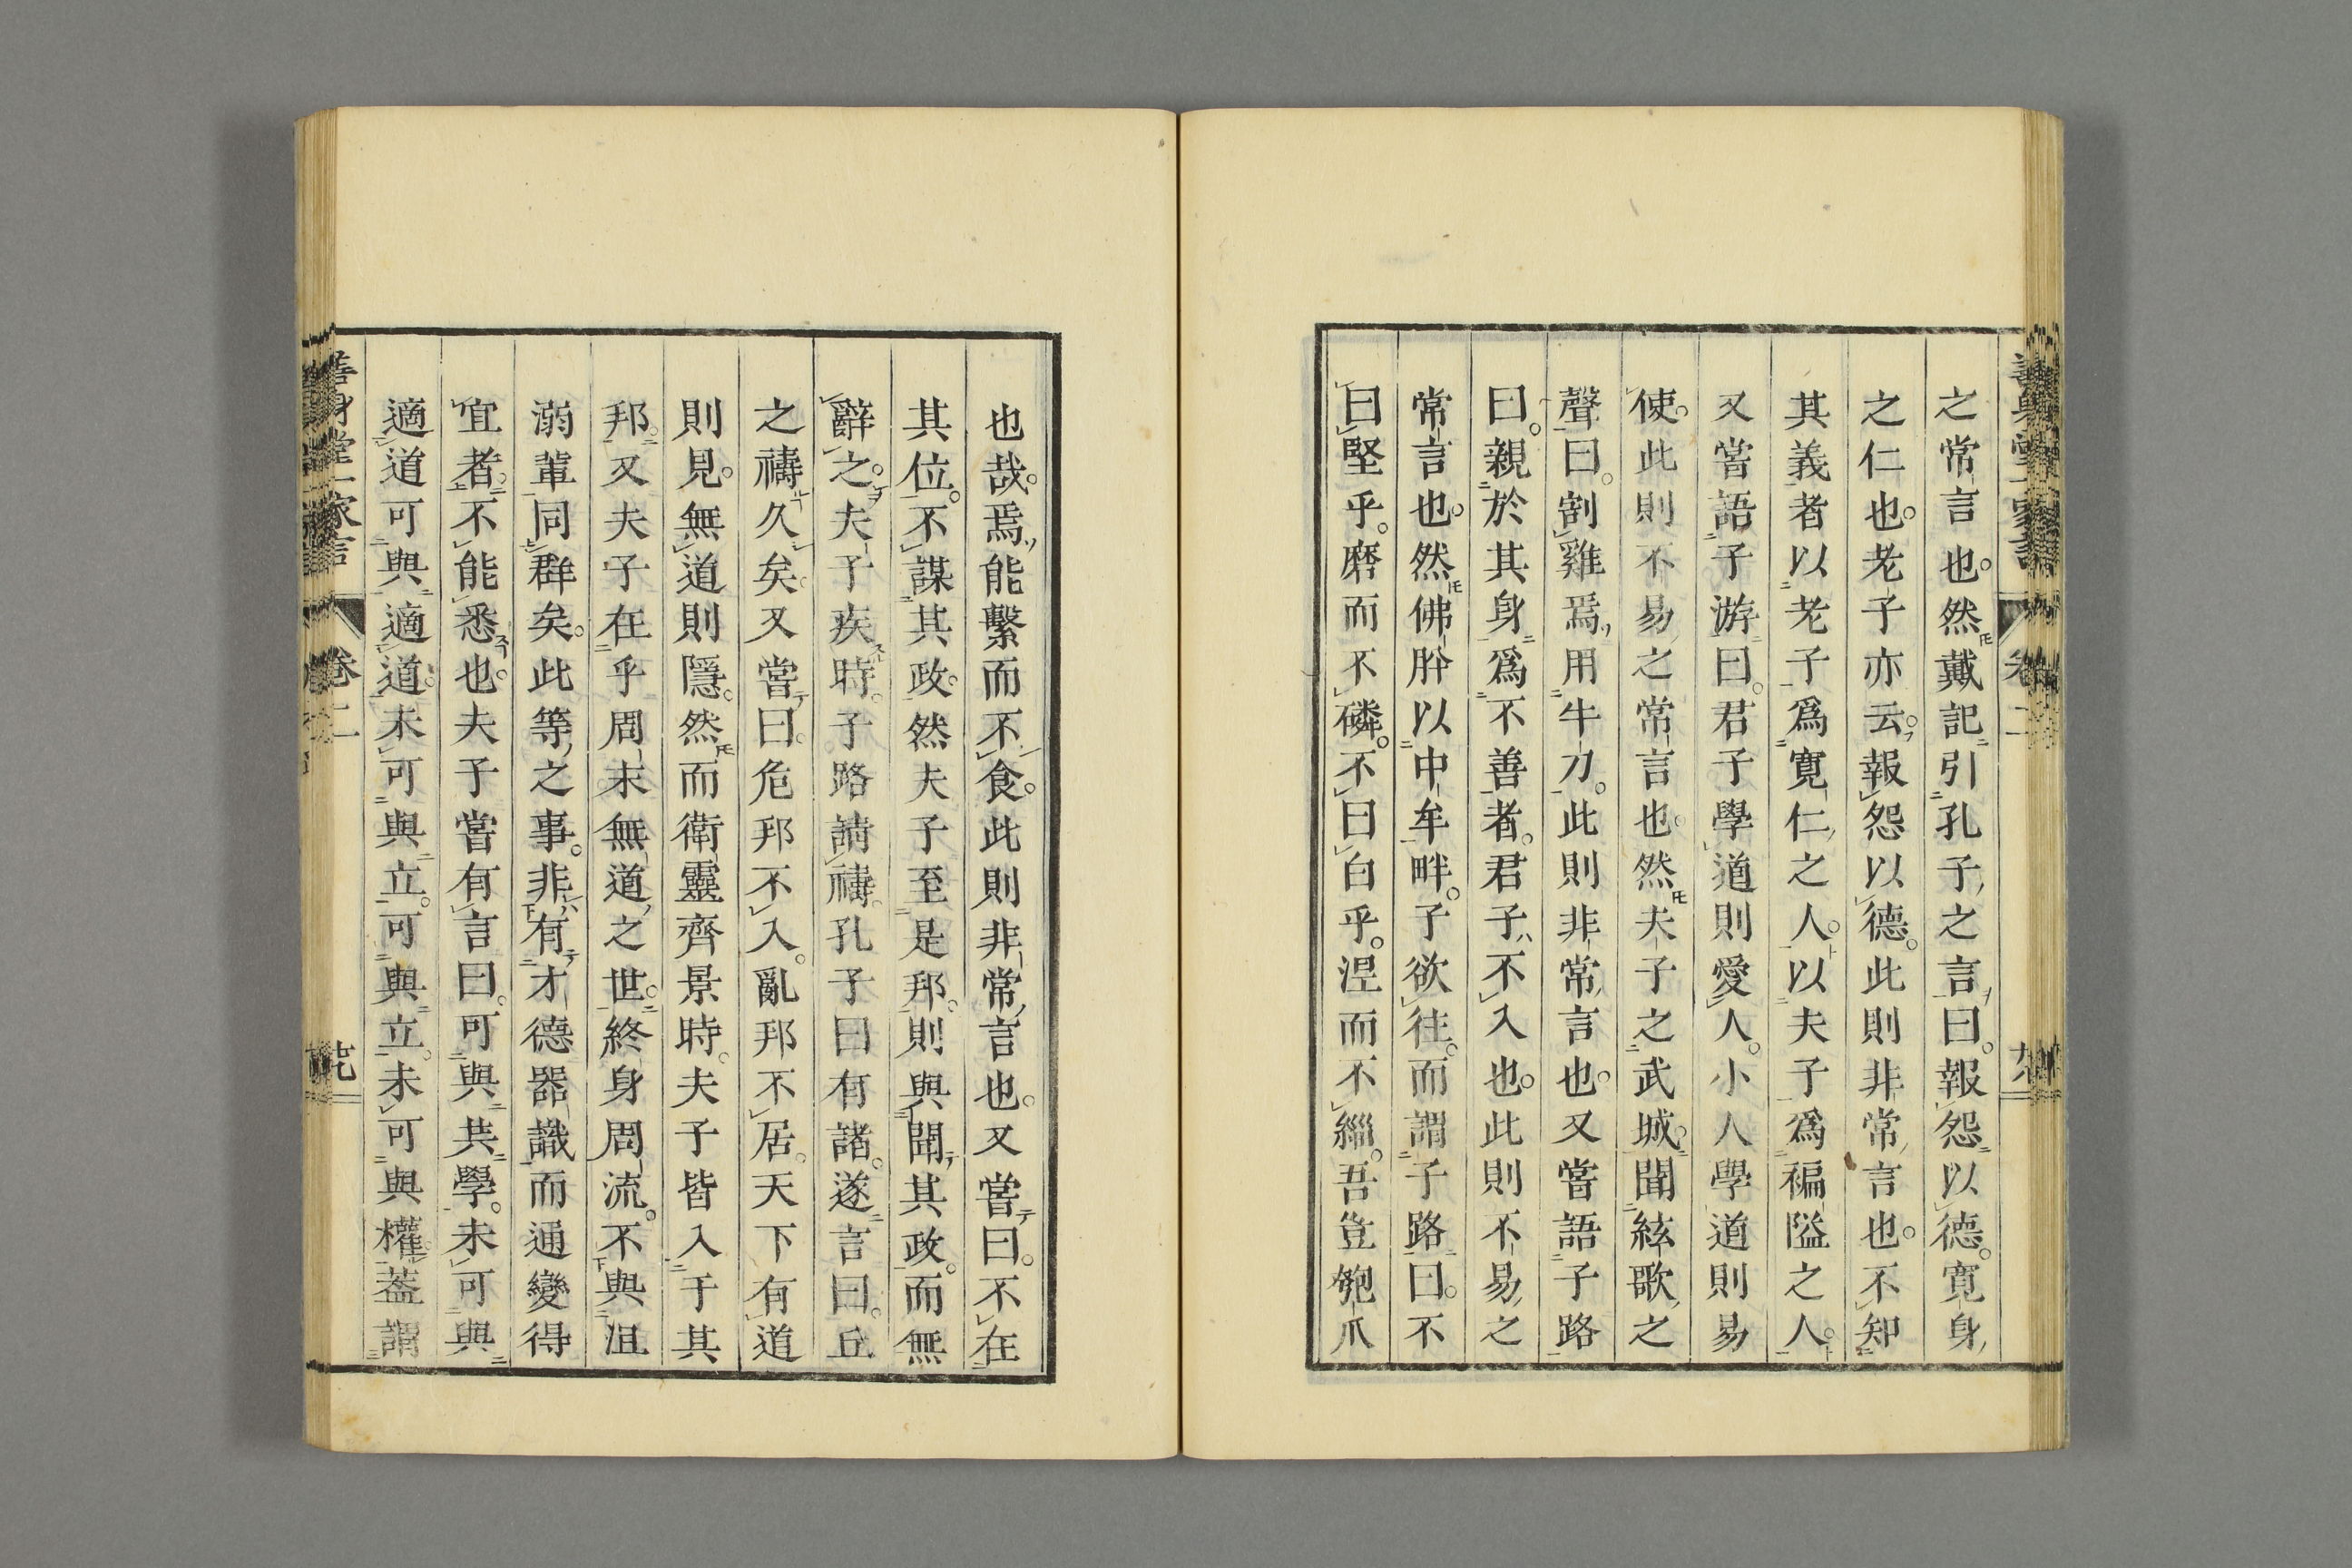 之常言也。然戴記引孔子之言曰。報怨以德。寛身
之仁也。老子亦云。報怨以德。此則非常言也。不知
其義者以老子爲寛仁之人。以夫子爲褊隘之人。
又嘗語子游曰。君子學道則愛人。小人學道則易
使。此則不易之常言也。然夫子之武城。聞絃歌之
聲曰。割雞焉用牛刀。此則非常言也。又嘗語子路
曰。親於其身爲不善者。君子不入也。此則不易之
常言也。然佛肸以中牟畔。子欲往。而謂子路曰。不
曰堅乎。磨而不磷。不曰白乎。涅而不緇。吾豈匏爪
也哉。焉能繫而不食。此則非常言也。又嘗曰。不在
其位。不謀其政。然夫子至是邦。則與聞其政。而無
辭之。夫子疾時。子路請禱。孔子曰有諸。遂言曰。丘
之禱久矣。又嘗曰。危邦不入。亂邦不居。天下有道
則見。無道則隱。然而衛靈齊景時。夫子皆入于其
邦。又夫子在乎周末無道之世。終身周流。不與沮
溺輩同群矣。此等之事。非有才德器識而通變得
宜者。不能悉也。夫子嘗有言曰。可與共學。未可與
適道可與適道。未可與立。可與立。未可與權。葢謂
善身堂一家言 卷二